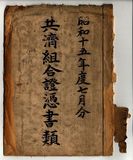 昭和十五年度七月分
共濟組合證憑書類